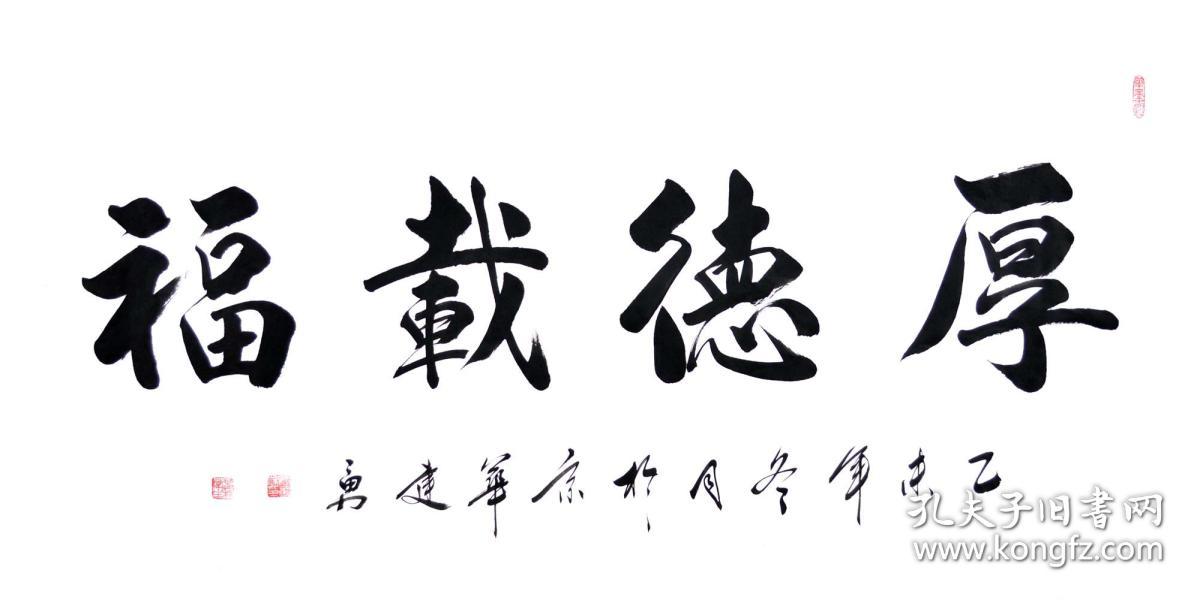 厚德載福
乙未年冬月於京華建勇
孔夫子旧书网
www.kongfz.com